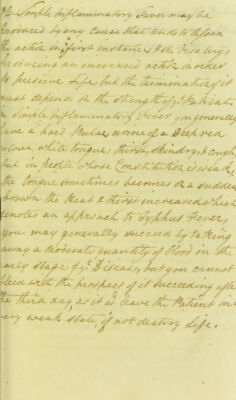 96. Simple Inflammatory Fever may be
produced by any cause that tends to lessen
the action in first instance & the Vis a tergo
producing an increased action in order
to preserve Life, but the termination of it
must depend on the strength of ye. Patient.
in Simple Inflammatory Fever you generally
have a hard Pulse, urine of a Deep red
colour white tongue, thirst, skin dry & rough,
but in people whose Constitution is weak,
the tongue sometimes becomes on a sudden
brown the Heat & thirst increased which
denotes an approach to Typhus Fever,
you may generally succeed by taking
away a moderate quantity of blood in the
early stage of ye. Disease, but you cannot
bleed with the prospect of it succeeding after
the third day, as it is leave the Patient in a
very weak state, if not destroy Life.